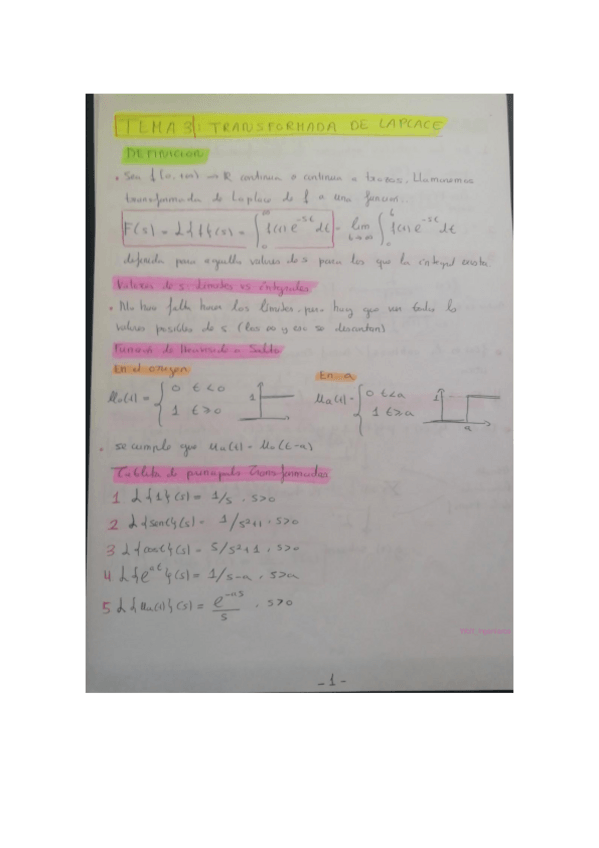 TEMA 3: TRANSFORMADA DE LAPLACE
DEFINICION
• Sea f [0,+∞) → R continua o continua a trozos. Llamaremos
transformada de Laplace de f a una funcion:
F(s) = L{f}(s) = ∫₀^∞ f(t) e^-st dt = lim b→∞ ∫₀^b f(t) e^-st dt
definida para aquellos valores de s para los que la integral exista
Valores de s: limites vs integrales
• No hace falta hacer los límites, pero hay que ver todos lo
valores posibles de s (los ∞ y eso se descartan)
Funcion de Heaviside o Salto
En el origen
En a
u₀(t) = { 0 t<0
1 t>0
1
ua(t) = { 0 t<a
1 t>a
1
a
• se cumple que ua(t) = u₀(t-a)
Tablita de principales Transformadas
1 L{1}(s) = 1/s , s>0
2 L{sent}(s) = 1/s²+1 , s>0
3 L{cost}(s) = s/s²+1 , s>0
4 L{e^at}(s) = 1/s-a , s>a
5 L{ua(t)}(s) = e^-as / s , s>0
-1-